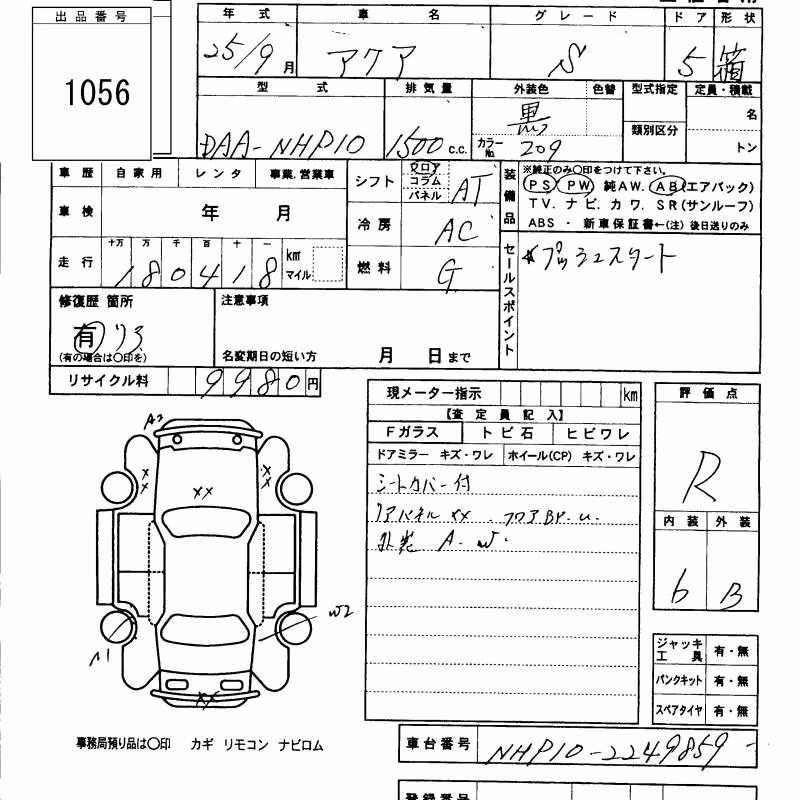 出品番号
1056
年式 車名 グレード ドア 形状
25/9月 アクア S 5 箱
型式 排気量 外装色 色替 型式指定 定員・積載
DAA-NHP10 1500 c.c. 黒 類別区分 名
カラーNo. 209 トン
車歴 自家用 レンタ 事業.営業車
車検 年 月
走行 十万 万 千 百 十 一
180418 km マイル
シフト フロア コラム パネル AT
冷房 AC
燃料 G
装備品
※純正のみ○印をつけて下さい。
PS PW 純AW. AB(エアバック)
TV. ナビ. カワ. SR(サンルーフ)
ABS ・ 新車保証書←(注)後日送りのみ
セールスポイント
プッシュスタート
修復歴 箇所
有 リヤ
(有の場合は○印を)
注意事項
名変期日の短い方 月 日まで
リサイクル料 9980円
現メーター指示 km
【査定員記入】
Fガラス トビ石 ヒビワレ
ドアミラー キズ・ワレ ホイール(CP) キズ・ワレ
シートカバー付
リアパネル XX. フロアBP.u.
外装 A.W.
評価点
R
内装 外装
6 B
A2
XX
XX
XX
W2
A1
XX
ジャッキ工具 有・無
パンクキット 有・無
スペアタイヤ 有・無
事務局預り品は○印 カギ リモコン ナビロム
車台番号 NHP10-2249859
登録番号